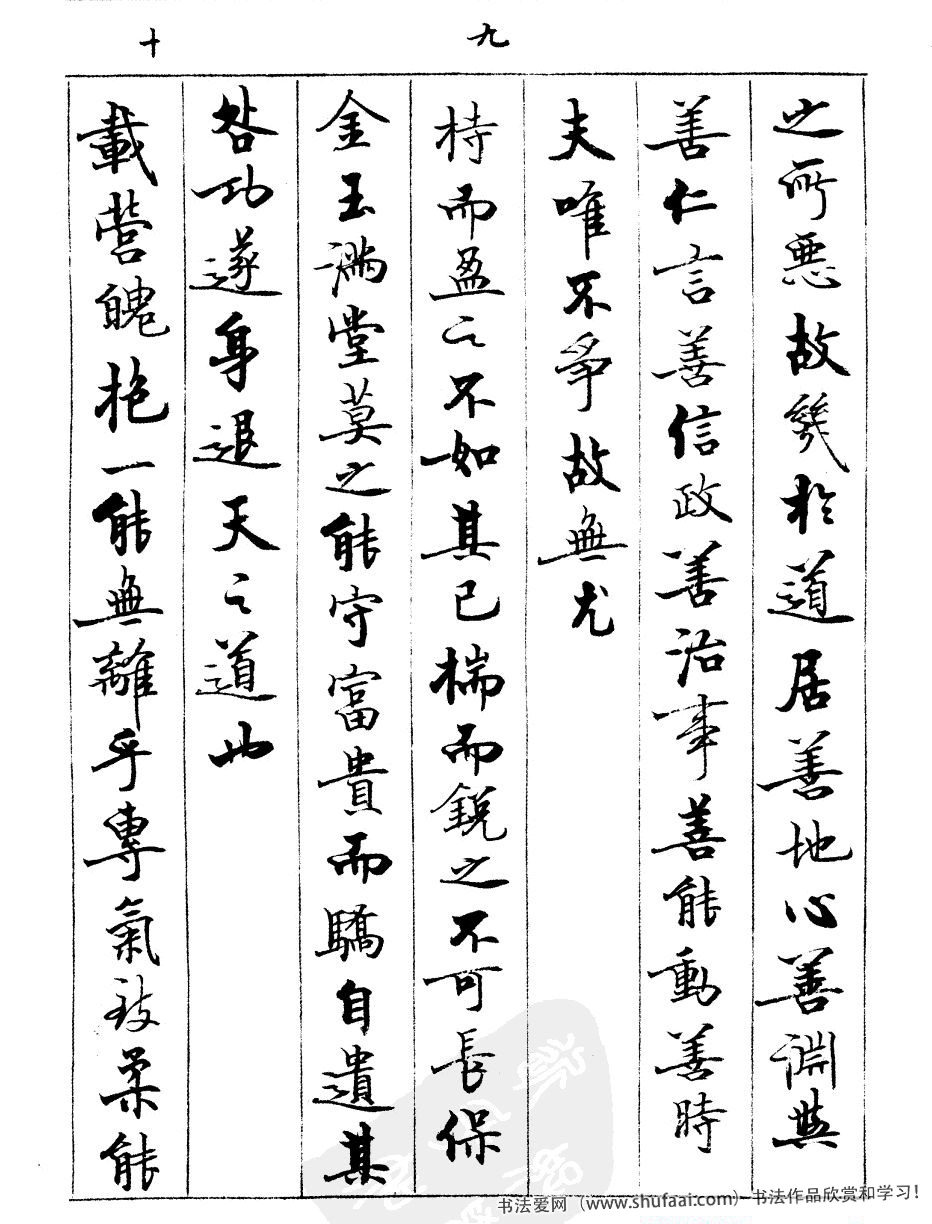 九
十
之所惡故幾於道居善地心善淵與
善仁言善信政善治事善能動善時
夫唯不爭故無尤
持而盈之不如其已楊而銳之不可長保
金玉滿堂莫之能守富貴而驕自遺其
咎功遂身退天之道也
載營魄抱一能無離乎專氣致柔能
书法爱网（www.shufaai.com）-书法作品欣赏和学习！